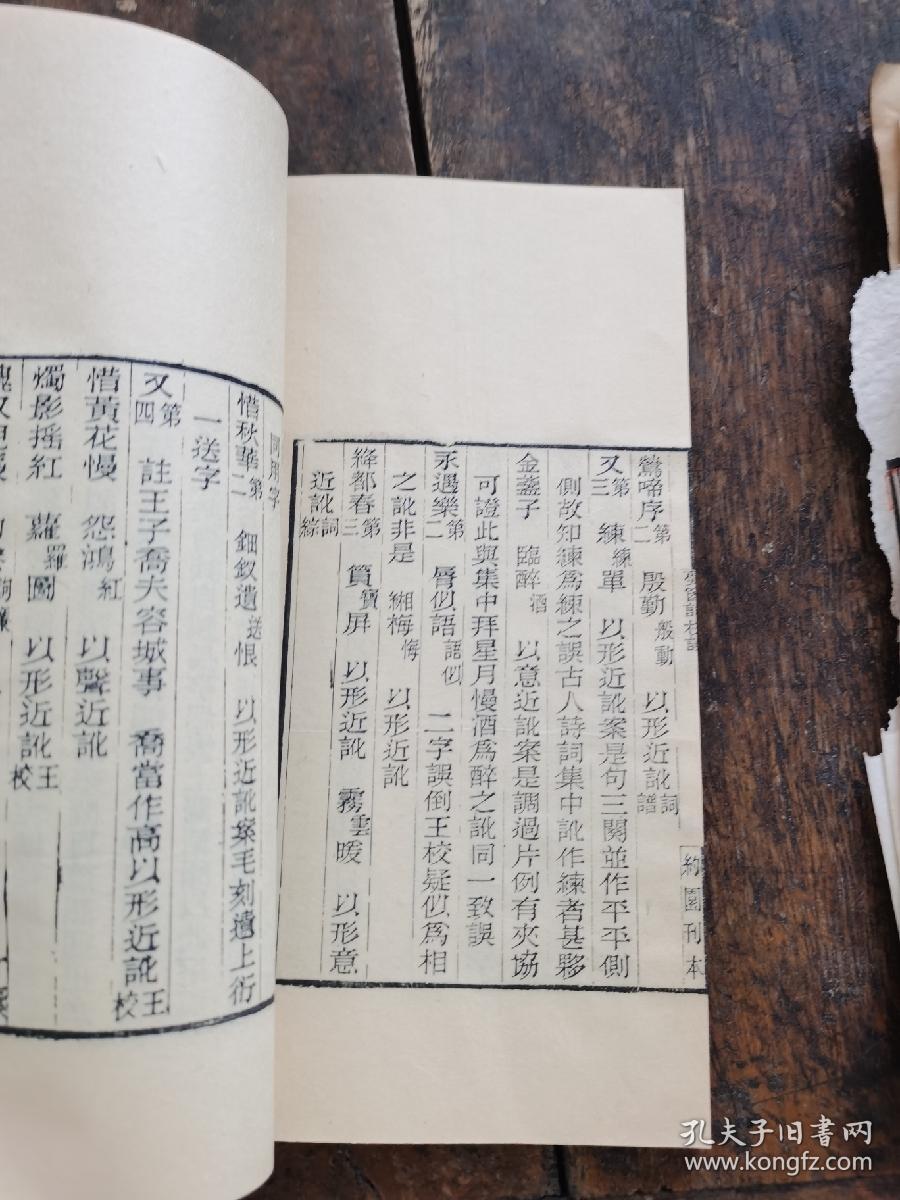 約園刊本
鶯啼序第二 殷勤般動 以形近訛詞譜
又第三 練練單 以形近訛案是句三關並作平平側
側故知練爲練之誤古人詩詞集中訛作練者甚夥
金盞子 臨醉酒 以意近訛案是調過片例有夾協
可證此與集中拜星月慢酒爲醉之訛同一致誤
永遇樂第二 脣似語語似 二字誤倒王校疑似爲相
之訛非是 緗梅悔 以形近訛
絳都春第三 篔寶屏 以形近訛 霧雲暖 以形意
近訛詞綜
同用字
惜秋華第二 鈿釵遺送恨 以形近訛案毛刻遺上衍
一送字
又第四 註王子喬夫容城事 喬當作高以形近訛王校
惜黃花慢 怨鴻紅 以聲近訛
燭影搖紅 蘿羅圖 以形近訛王校
孔夫子旧书网
www.kongfz.com